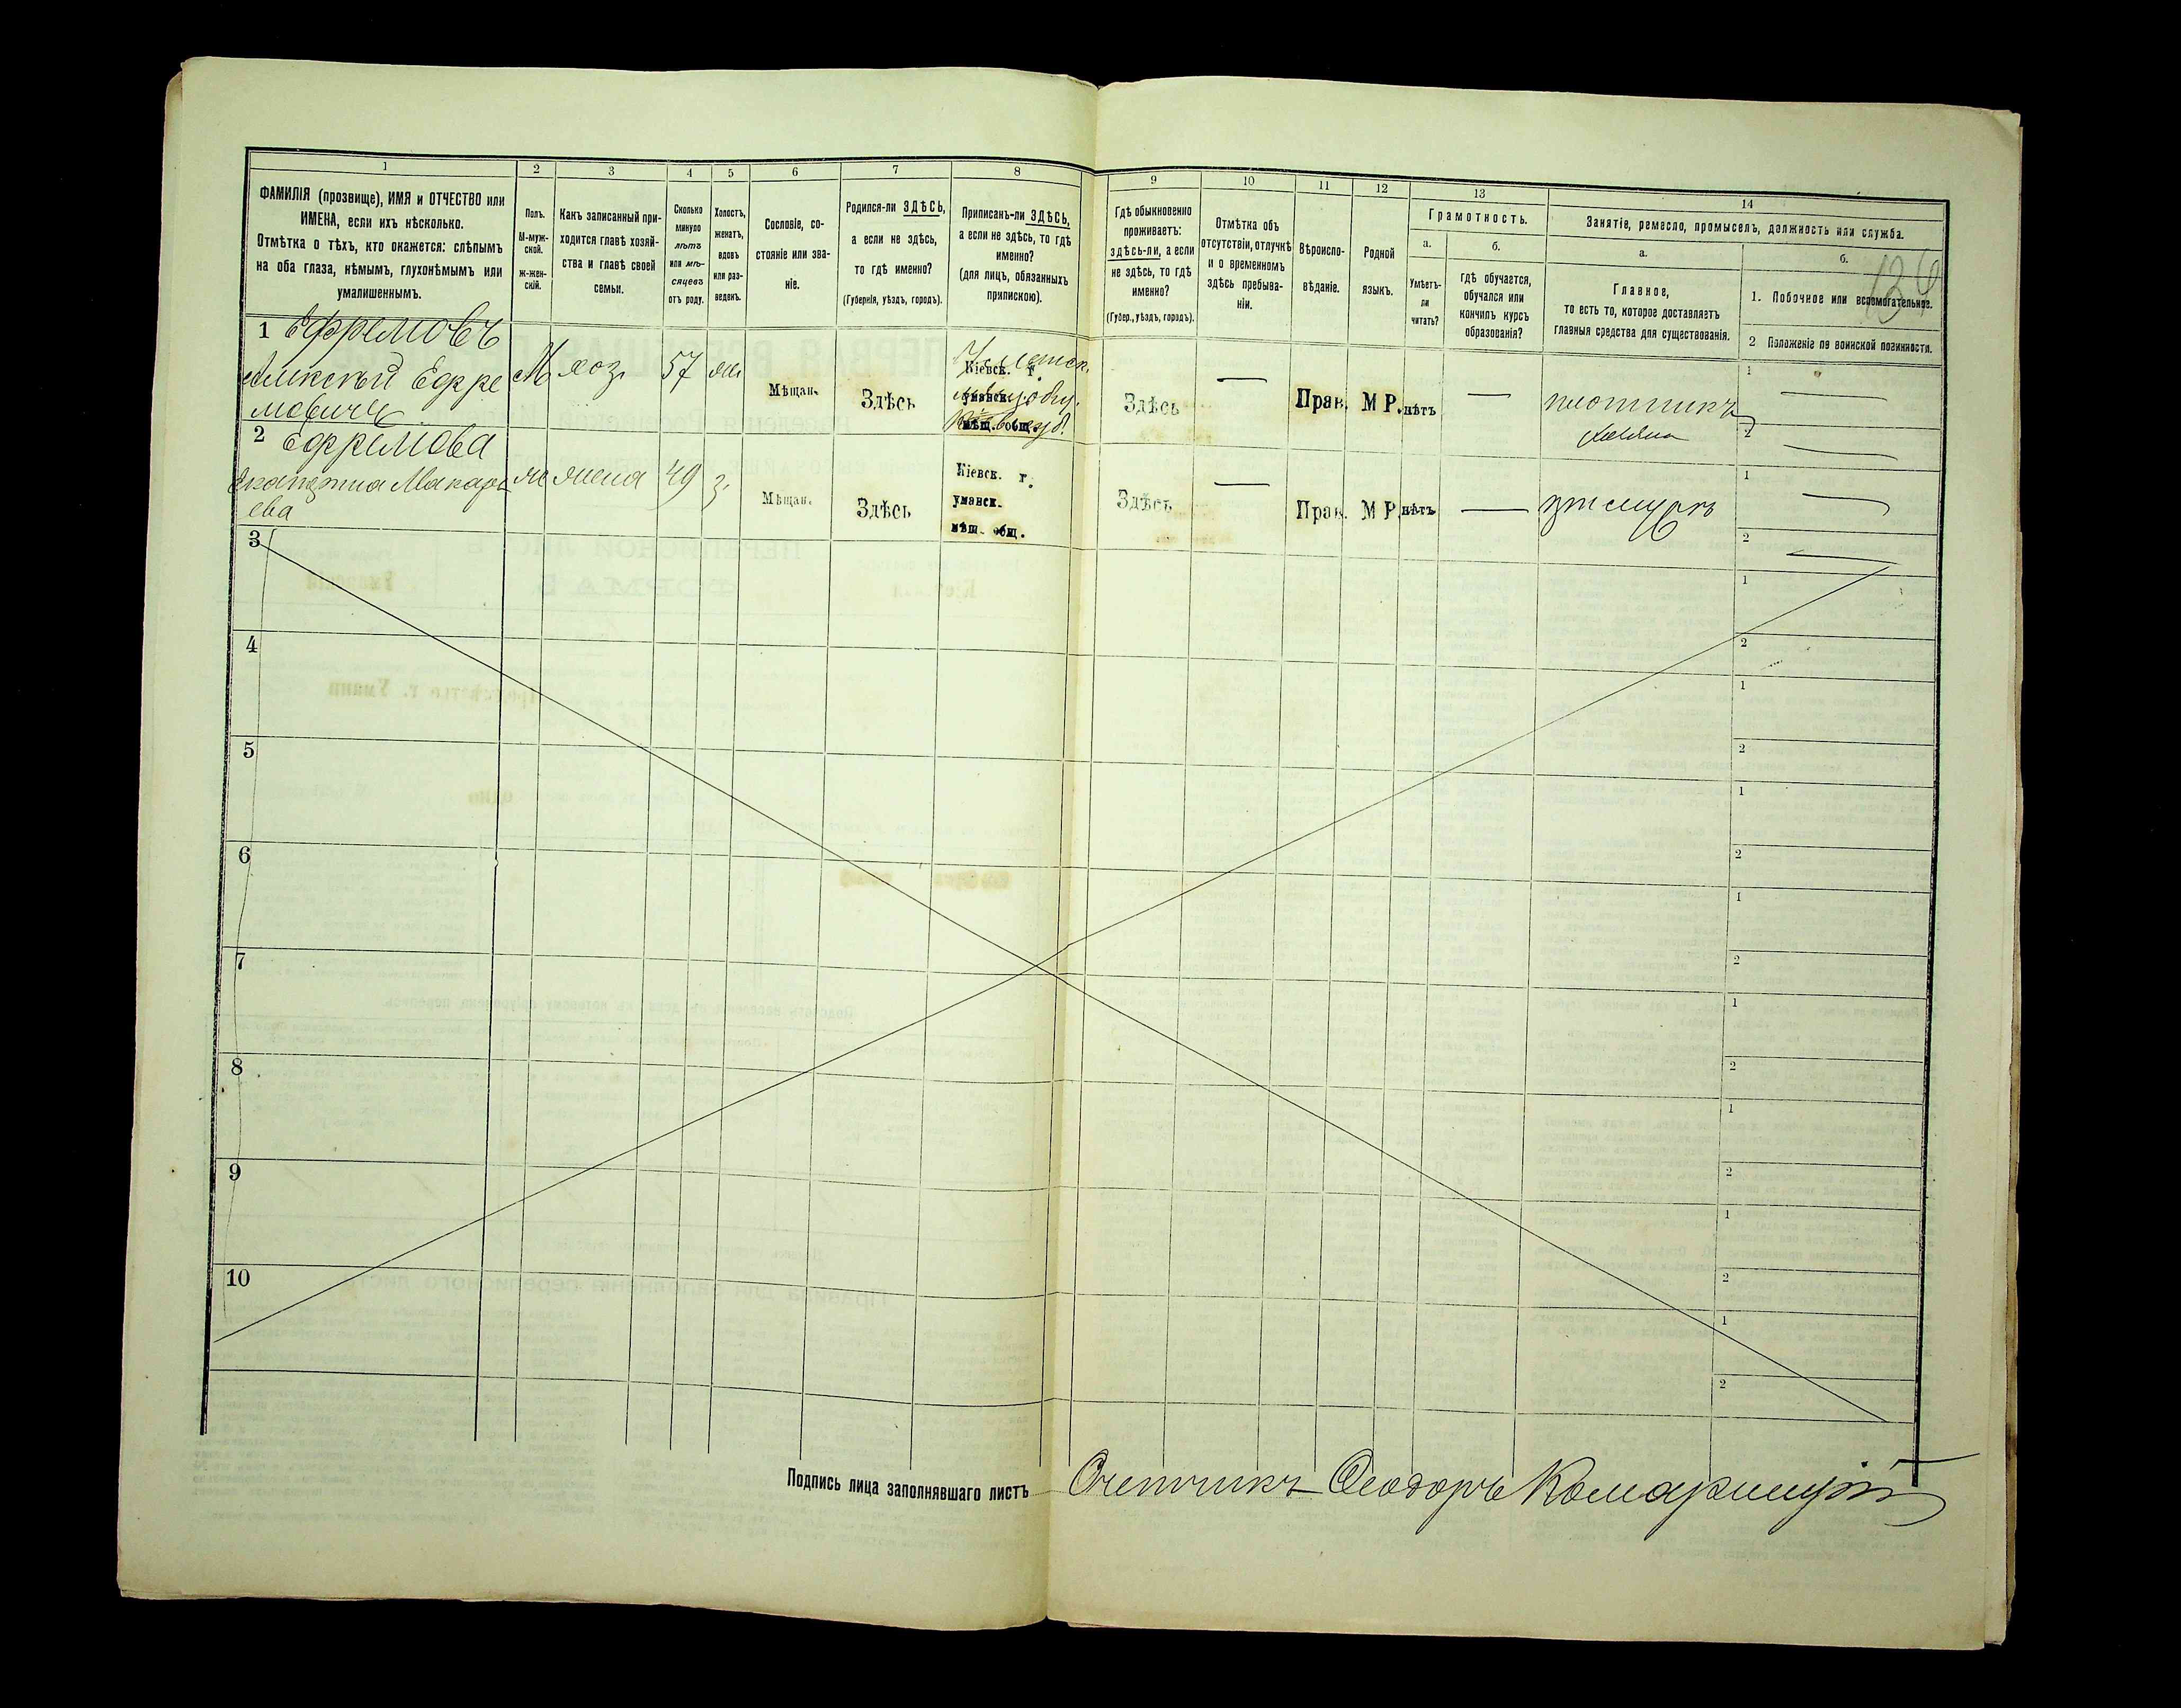 1 2 3 4 5 6 7 8 9 10 11 12 13 14
ФАМИЛІЯ (прозвище), ИМЯ и ОТЧЕСТВО или
ИМЕНА, если ихъ нѣсколько.
Отмѣтка о тѣхъ, кто окажется: слѣпымъ
на оба глаза, нѣмымъ, глухонѣмымъ или
умалишеннымъ.
Полъ.
М-муж-
ской.
ж-жен-
скій.
Какъ записанный при-
ходится главѣ хозяй-
ства и главѣ своей
семьи.
Сколько
минуло
лѣтъ
или мѣ-
сяцевъ
отъ роду.
Холостъ,
женатъ,
вдовъ
или раз-
веденъ.
Сословіе, со-
стояніе или зва-
ніе.
Родился-ли ЗДѢСЬ,
а если не здѣсь,
то гдѣ именно?
(Губернія, уѣздъ, городъ).
Приписанъ-ли ЗДѢСЬ,
а если не здѣсь, то гдѣ
именно?
(для лицъ, обязанныхъ
припискою).
Гдѣ обыкновенно
проживаетъ:
здѣсь-ли, а если
не здѣсь, то гдѣ
именно?
(Губер., уѣздъ, городъ).
Отмѣтка объ
отсутствіи, отлучкѣ
и о временномъ
здѣсь пребыва-
ніи.
Вѣроиспо-
вѣданіе.
Родной
языкъ.
Грамотность.
а.
Умѣетъ-
ли
читать?
б.
гдѣ обучается,
обучался или
кончилъ курсъ
образованія?
Занятіе, ремесло, промыселъ, должность или служба.
а.
Главное,
то есть то, которое доставляетъ
главныя средства для существованія.
б.
1. Побочное или вспомогательное.
2 Положеніе по воинской повинности.
1 Ефремовъ
Алексѣй Ефре
мовичъ
М хоз. 57 Мѣщан. Здѣсь
Кіевск. г.
уманск.
мѣщ. общ.
Здѣсь — Прав. М Р. нѣтъ — плотникъ
1
2
2 Ефремова
Екатерина Макарь
ева
ж жена 49 з. Мѣщан. Здѣсь
Кіевск. г.
уманск.
мѣщ. общ.
Здѣсь — Прав. М Р. нѣтъ —
1
2
3
1
2
4
1
2
5
1
2
6
1
2
7
1
2
8
1
2
9
1
2
10
1
2
Подпись лица заполнявшаго листъ Счетчикъ Ѳеодоръ Комарницкій